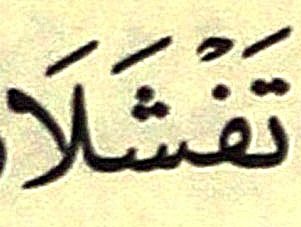 تَفْشَلَا